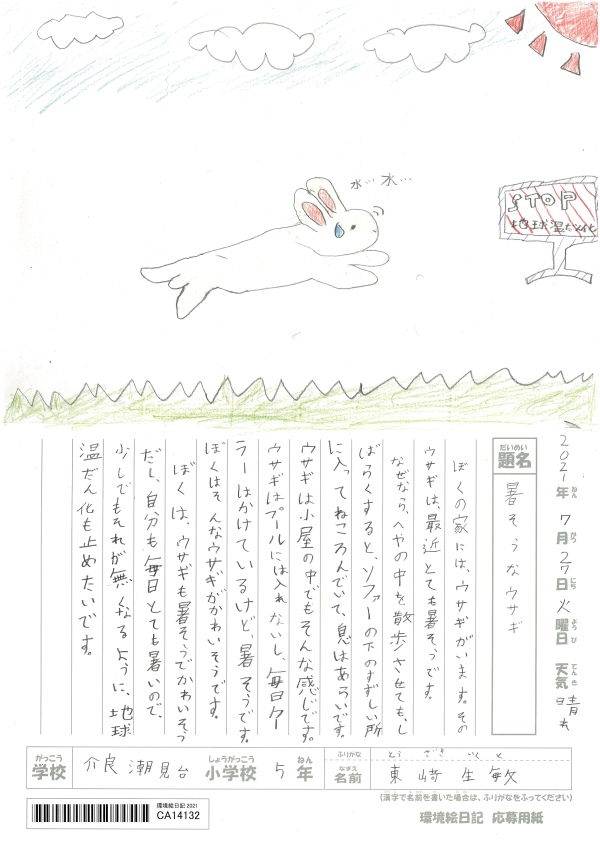 水… 水…
STOP
地球温だん化
2021年 7月 27日 火曜日 天気 晴れ
ねん がつ にち ようび てんき
だいめい
題名
暑そうなウサギ
ぼくの家には、ウサギがいます。その
ウサギは、最近とても暑そうです。
なぜなら、へやの中を散歩させても、し
ばらくすると、ソファーの下のすずしい所
に入ってねころんでいて、息はあらいです。
ウサギは小屋の中でもそんな感じです。
ウサギはプールには入れないし、毎日クー
ラーはかけているけど、暑そうです。
ぼくはそんなウサギがかわいそうです。
ぼくは、ウサギも暑そうでかわいそう
だし、自分も毎日とても暑いので、
少しでもそれが無くなるように、地球
温だん化も止めたいです。
がっこう
学校
介良潮見台
しょうがっこう
小学校
5
ねん
年
ふりがな
とう ざき いく と
なまえ
名前
東崎 生敏
(漢字で名前を書いた場合は、ふりがなをふってください)
環境絵日記 2021
CA14132
環境絵日記 応募用紙